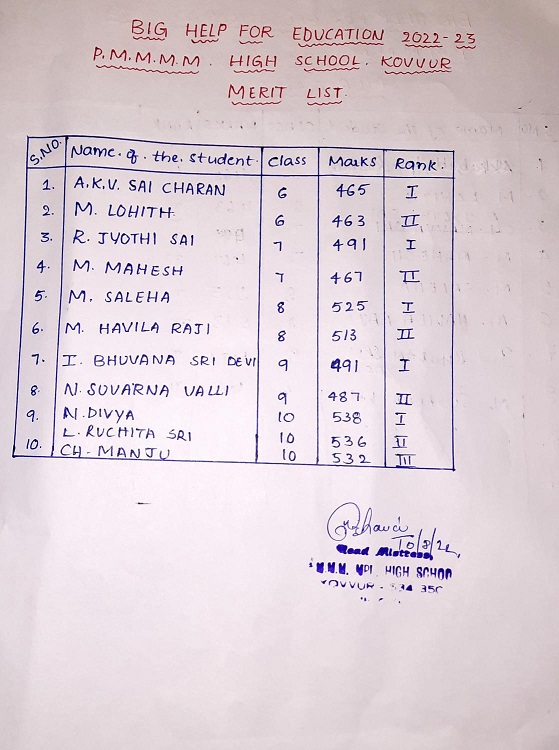 BIG HELP FOR EDUCATION 2022-23
P.M.M.M.M. HIGH SCHOOL. KOVVUR
MERIT LIST.
S.NO. Name. of. the. student. class Marks Rank.
1. A.K.V. SAI CHARAN 6 465 I
2. M. LOHITH 6 463 II
3. R. JYOTHI SAI 7 491 I
4. M. MAHESH 7 467 II
5. M. SALEHA 8 525 I
6. M. HAVILA RAJI 8 513 II
7. I. BHUVANA SRI DEVI 9 491 I
8. N. SUVARNA VALLI 9 487 II
9. N. DIVYA 10 538 I
L. RUCHITA SRI 10 536 II
10. CH. MANJU 10 532 III
10/8/22,
Head Mistress,
M.M.M. MPL. HIGH SCHOO
KOVVUR - 534 350